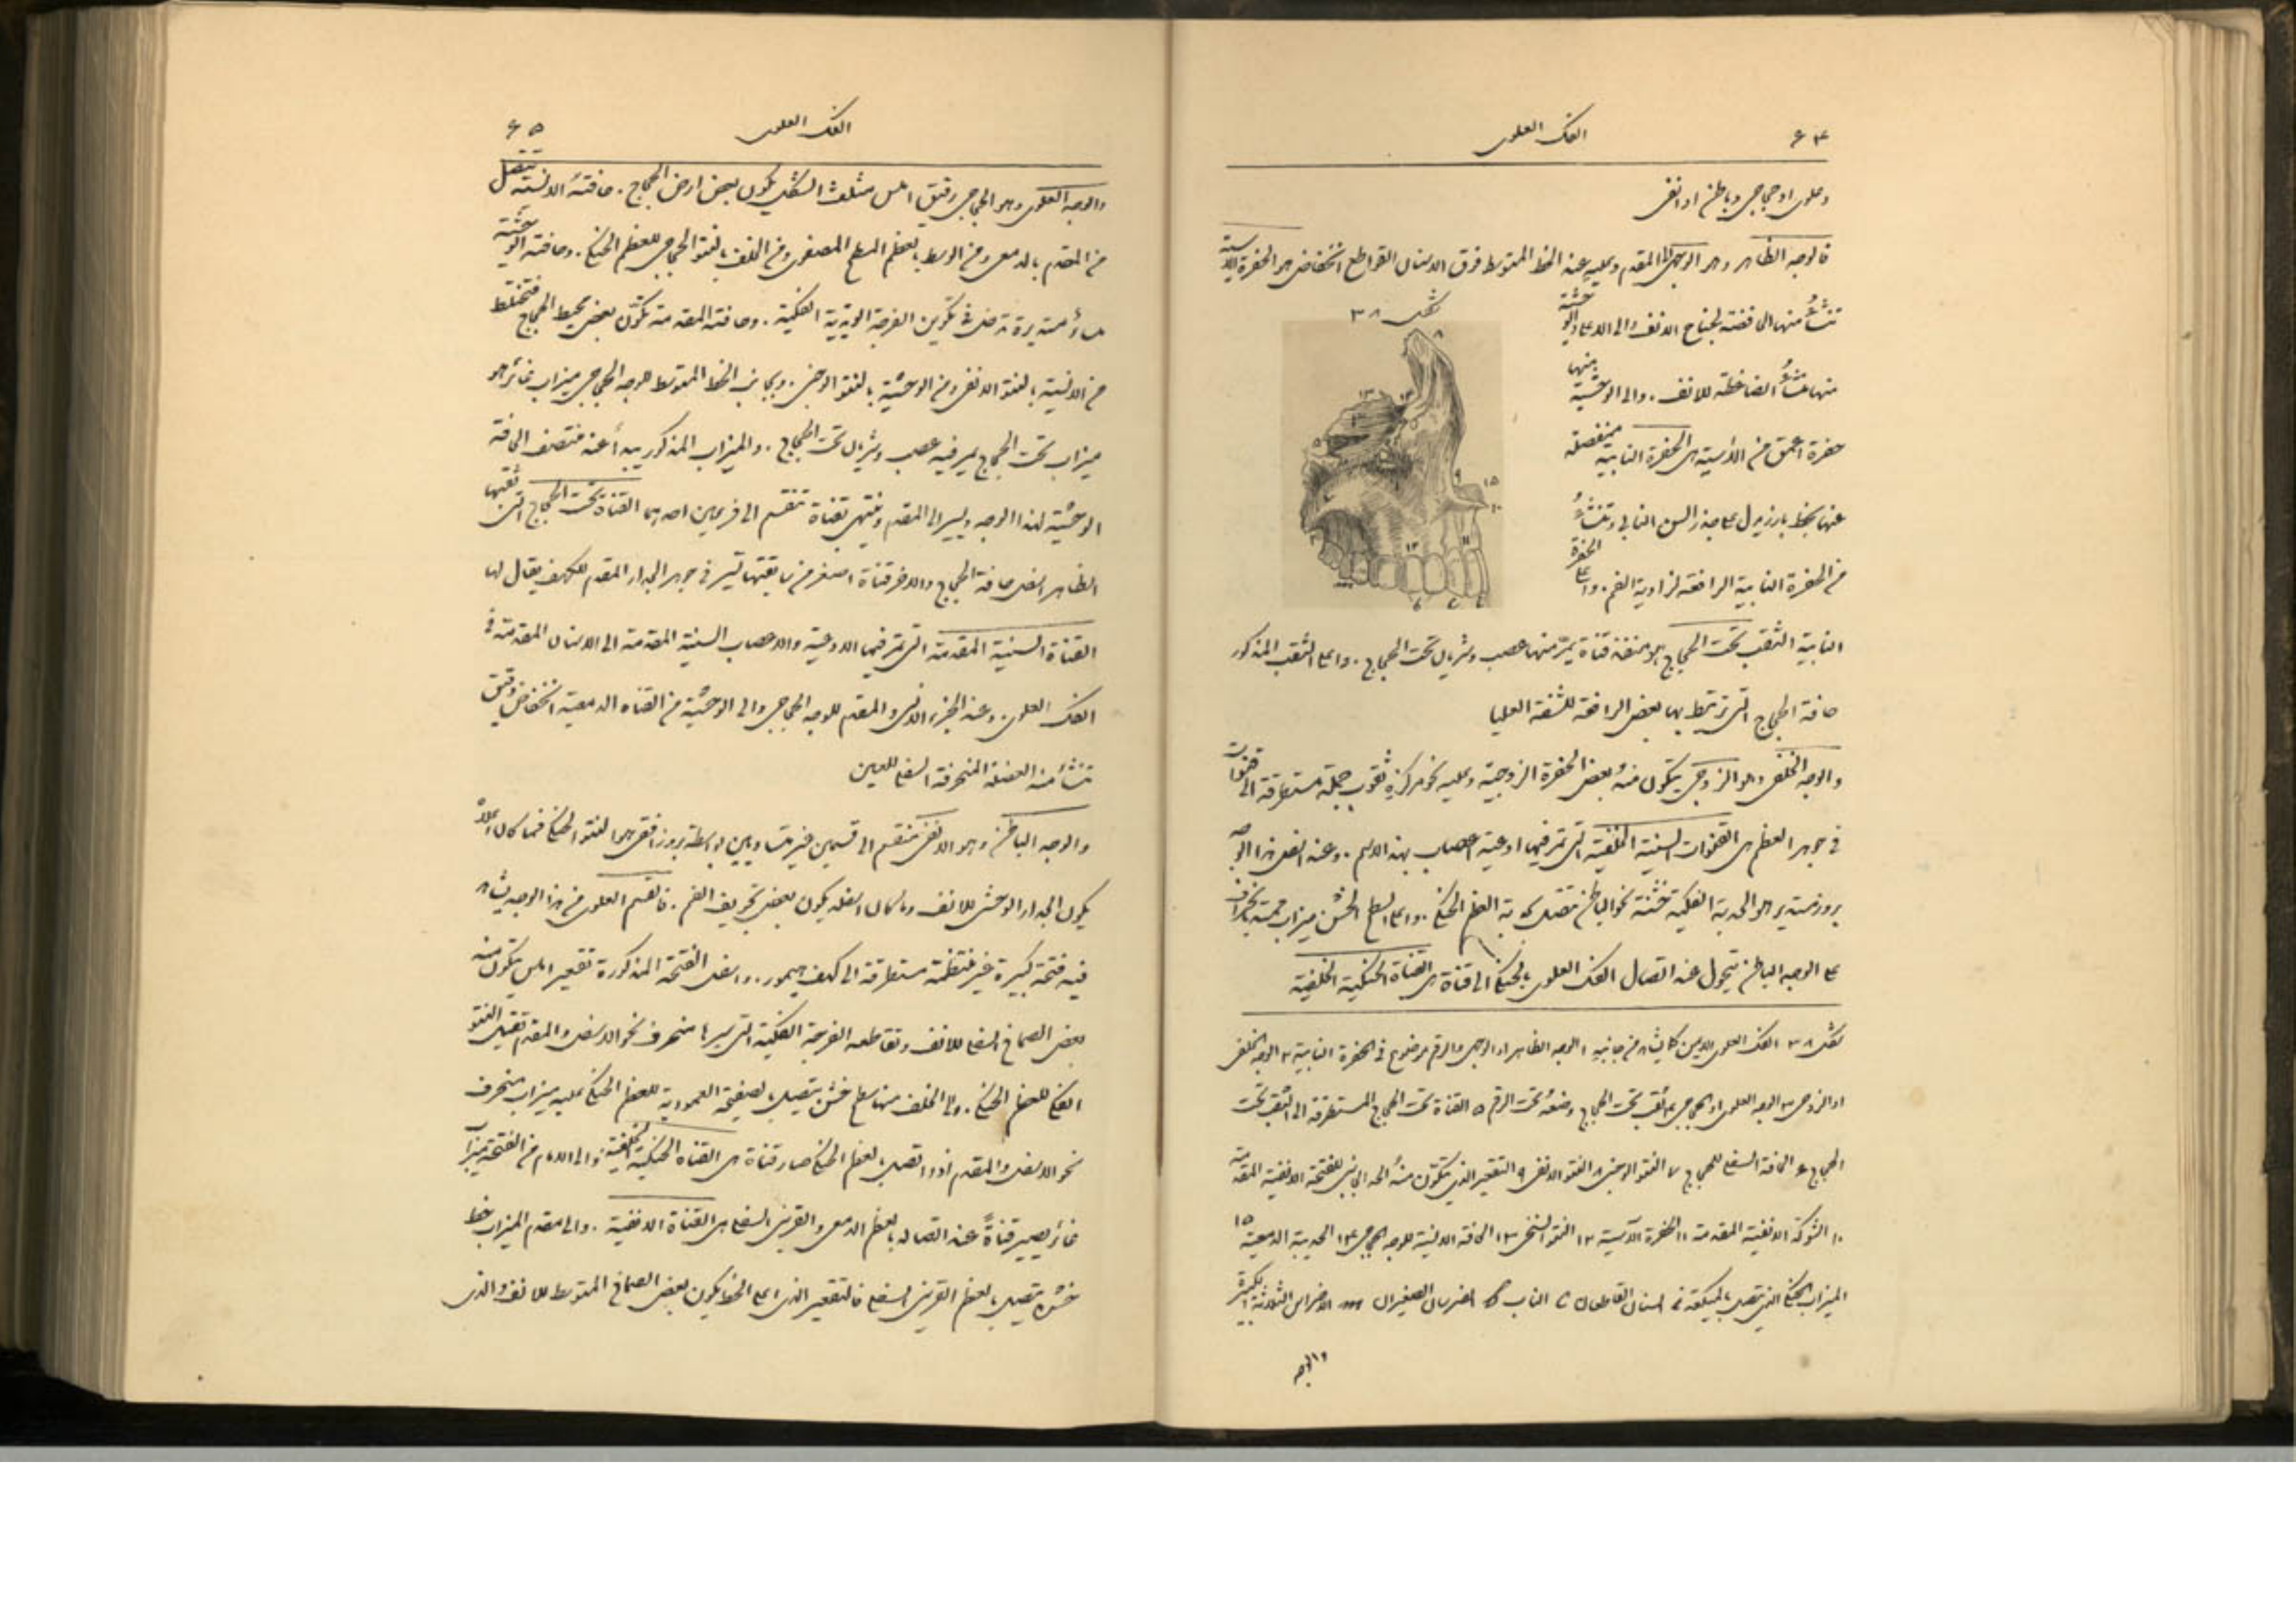 ٦٤ الفك العلوى
وعلوى او حجاجى وباطن او انفى
فالوجه الظاهر وهو الوجهى الى المقدم وعليه عند الخط المتوسط فوق الاسنان القواطع انخفاض هو الحفرة الآسية
شكل ٣٨
تنشأُ منها الخافضة لجناح الانف والى الاعلى والوحشية
منها منشأُ الضاغطة للانف. والى الوحشية منها
حفرة اعمق من الآسية هى الحفرة النابية منفصلة
عنها بخط بارز يدل على جذر السن النابى وتنشأُ
من الحفرة النابية الرافعة لزاوية الفم. واعلى الحفرة
النابية الثقب تحت الحجاج هو منفذ قناة يمرّ منها عصب وشريان تحت الحجاج. واعلى الثقب المذكور
حافة الحجاج التى ترتبط بها بعض الرافعة للشفة العليا
والوجه الخلفى وهو الزوجى يتكون منهُ بعض الحفرة الزوجية وعليه نحو مركزهِ ثقوب جملة مستطرقة الى قنوات
فى جوهر العظم هى القنوات السنية الخلفية التى تمر فيها اوعية اعصاب بهذا الاسم. وعند اسفل هذا الوجه
بروز مستدير هو الحدبة الفكية خشنة نحو الباطن تتصل بحدبة العظم الحنكى. واعلى السطح الخشن ميزاب متجه بانحراف
على الوجه الباطن يتحول عند اتصال الفك العلوى بالحنكى الى قناة هى القناة الحنكية الخلفية
شكل ٣٨ الفك العلوى الايمن كما يشاهد من جانبهِ ١ الوجه الظاهر او الوجهى والرقم موضوع فى الحفرة النابية ٢ الوجه الخلفى
او الزوجى ٣ الوجه العلوى او الحجاجى ٤ الثقب تحت الحجاج وضعهُ تحت الرقم ٥ القناة تحت الحجاج المستطرقة الى الثقب تحت
الحجاج ٦ الحافة السفلى للحجاج ٧ النتو الوجنى ٨ النتو الانفى ٩ التقعير الذى يتكون منهُ الحد الجانبى للفتحة الانفية المقدمة
١٠ الشوكة الانفية المقدمة ١١ الحفرة الآسية ١٢ النتو السنخى ١٣ الحافة الانسية للوجه الحجاجى ١٤ الحدبة الدمعية ١٥
الميزاب الحنكى الذى يتصل اسنان القاطعان الناب الضرسان الصغيران الاضراس الثلاثة الكبيرة
والوجه
الفك العلوى ٦٥
والوجه العلوى وهو الحجاجى رقيق املس مثلث الشكل يكون بعض ارض الحجاج. حافتهُ الانسية تتصل
من المقدم بالدمعى ومن الوسط بالعظم المسطح المصفوى ومن الخلف بالنتو الحجاجى للعظم الحنكى. وحافته الوحشية
ملساء مستديرة تدخل فى تكوين الفرجة الوتدية الفكية. وحافته المقدمة تكوّن بعض محيط الحجاج فتختلط
من الانسية بالنتو الانفى ومن الوحشية بالنتو الوجنى. وبجانب الخط المتوسط للوجه الحجاجى ميزاب غائر هو
ميزاب تحت الحجاج يمر فيه عصب وشريان تحت الحجاج. والميزاب المذكور يبدأ عند منتصف الحافة
الوحشية لهذا الوجه ويسير الى المقدم وينتهى بقناة تنقسم الى فرعين احدهما القناة تحت الحجاج التى ثقبها
الظاهر اسفل حافة الحجاج والاخر قناة اصغر من سابقتها تسير فى جوهر الجدار المقدم للكهف يقال لها
القناة السنية المقدمة التى تمر فيها الاوعية والاعصاب السنية المقدمة الى الاسنان المقدمة فى
الفك العلوى. وعند الجزء الانسى والمقدم للوجه الحجاجى والى الوحشية من القناة الدمعية انخفاض دقيق
تنشأ منه العضلة المنحرفة السفلى للعين
والوجه الباطن وهو الانفى منقسم الى قسمين غير متساويين بواسطة بروز افقى هو النتو الحنكى فما كان اعلاهُ
يكون الجدار الوحشى للانف وما كان اسفله يكون بعض تجويف الفم. فالقسم العلوى من هذا الوجه يشاهد
فيه فتحة كبيرة غير منتظمة مستطرقة الى كهف هيمور. واسفل الفتحة المذكورة تقعير املس يتكون منه
بعض الصماخ السفلى للانف وتقاطعه الفرجة الفكية التى سيرها منحرف نحو الاسفل والمقدم تقبل النتو
الفكى للعظم الحنكى. والى الخلف منها سطح خشن يتصل بالصفيحة العمودية للعظم الحنكى عليه ميزاب منحرف
نحو الاسفل والمقدم اذا اتصل بالعظم الحنكى صار قناة هى القناة الحنكية الخلفية والى الامام من الفتحة ميزاب
غائر يصير قناةً عند اتصاله بالعظم الدمعى والقرينى السفلى هى القناة الانفية. والى مقدم الميزاب خط
خشن يتصل بالعظم القرينى السفلى فالتقعير الذى اعلى الخط يكون بعض الصماخ المتوسط للانف والذى